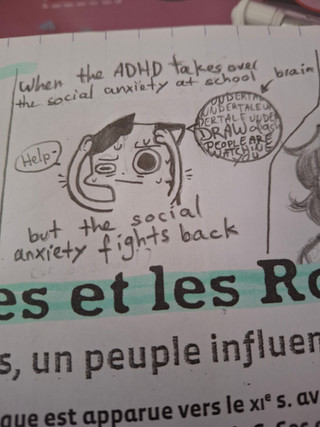 When the ADHD takes over
the social anxiety at school
brain
UNDERTALE
UNDERTALE U
DERTALE UNDER
DRAW
PEOPLE ARE
WATCHING
YOU
Help-
but the social
anxiety fights back
es et les Ro
s, un peuple influen
que est apparue vers le XIe s. av